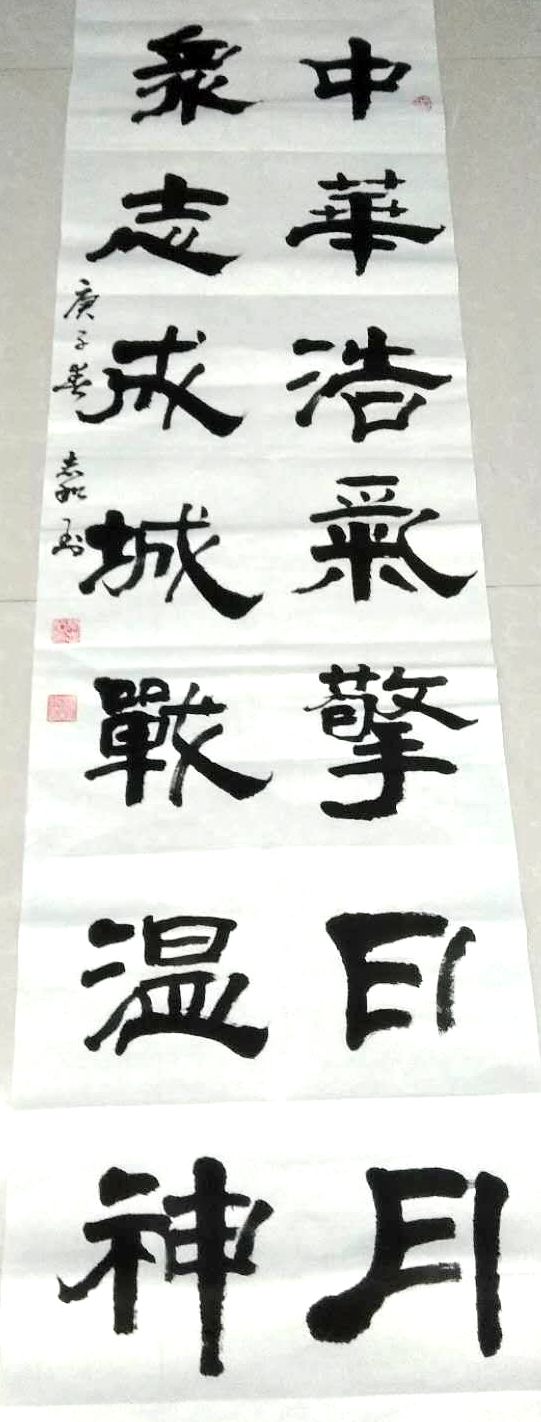 中華浩氣擎日月
衆志成城戰温神
庚子春